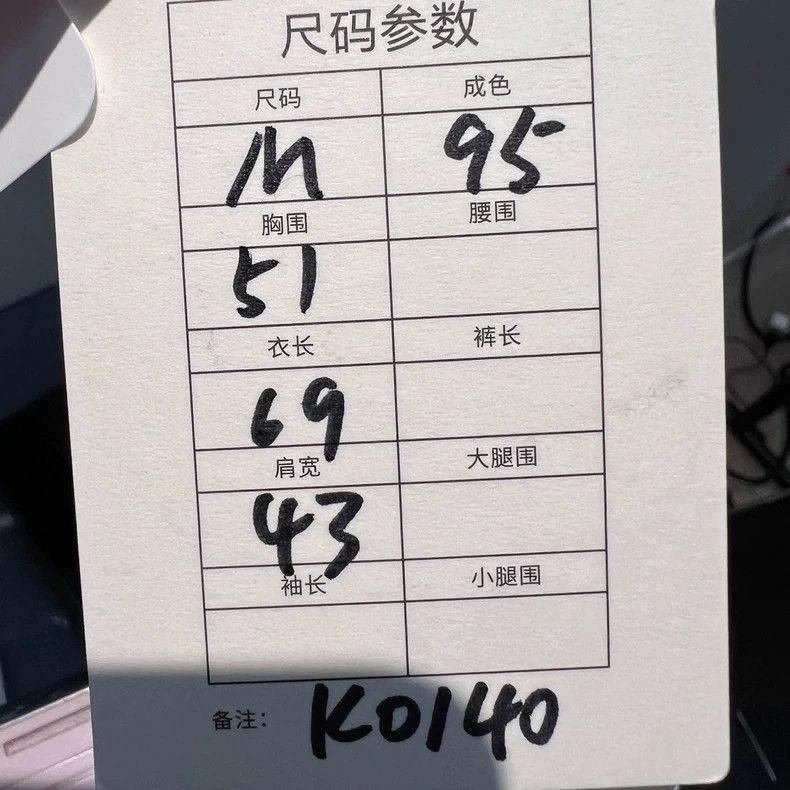 尺码参数
尺码 成色
M 95
胸围 腰围
51
衣长 裤长
69
肩宽 大腿围
43
袖长 小腿围
备注: K0140